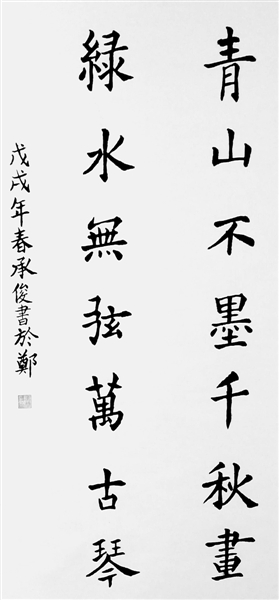 青山不墨千秋畫
緑水無弦萬古琴
戊戌年春承俊書於鄭